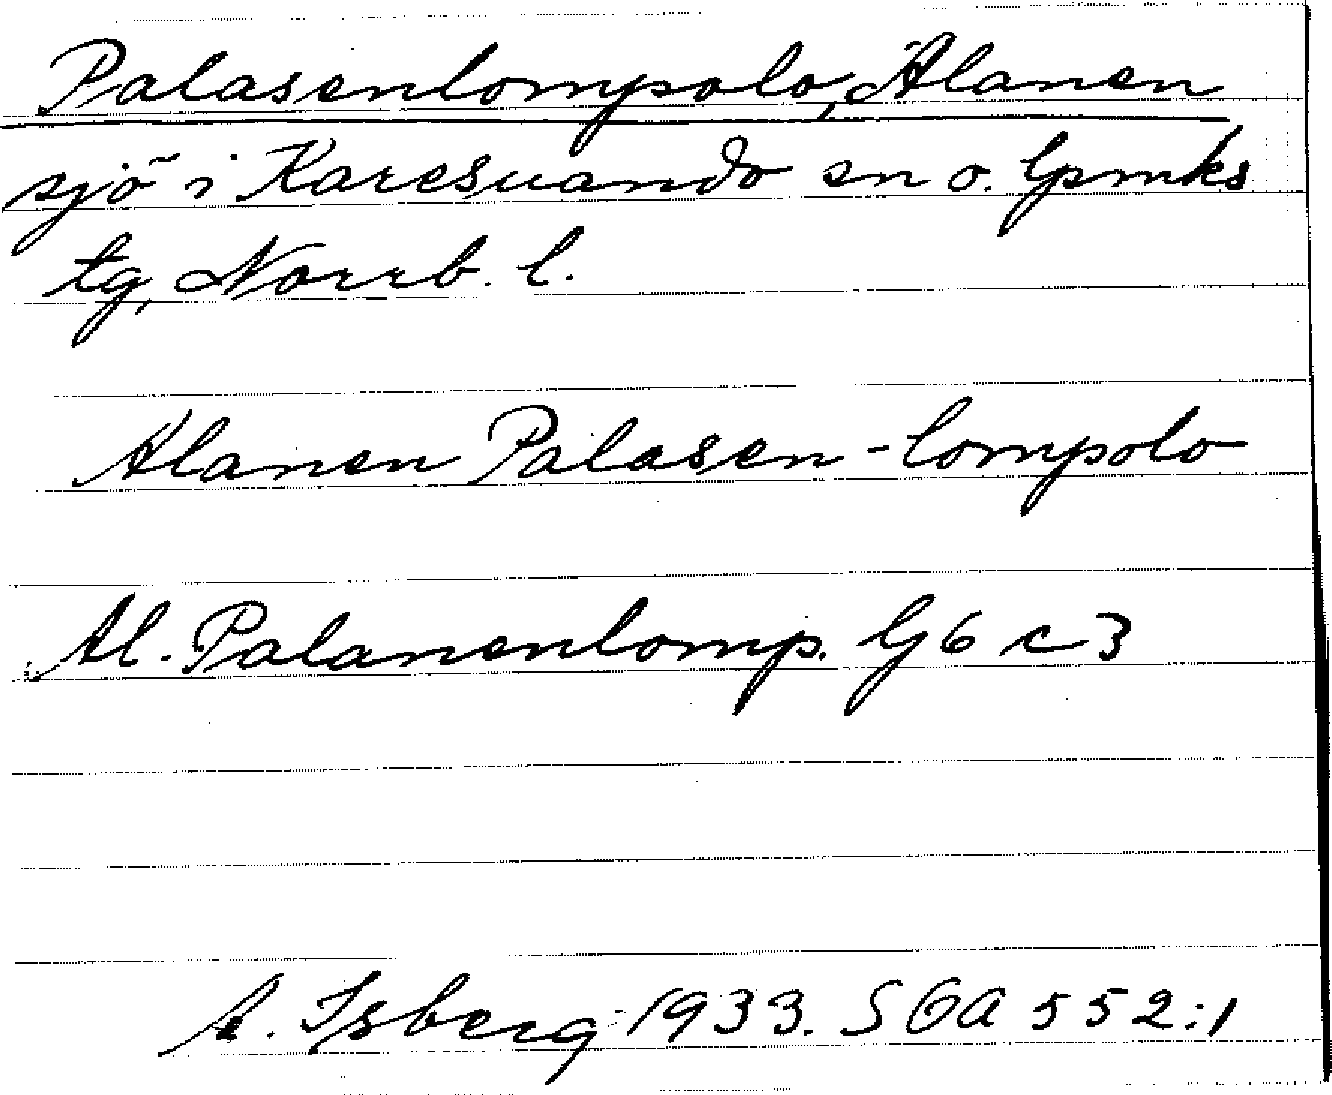 Palasenlompolo, Alanen
sjö i Karesuando sn o. lpmks
tg, Norrb. l.
Alanen Palasen-lompolo
Al. Palanenlomp. Gj 6 c 3
A. Isberg 1933. SOA 552:1